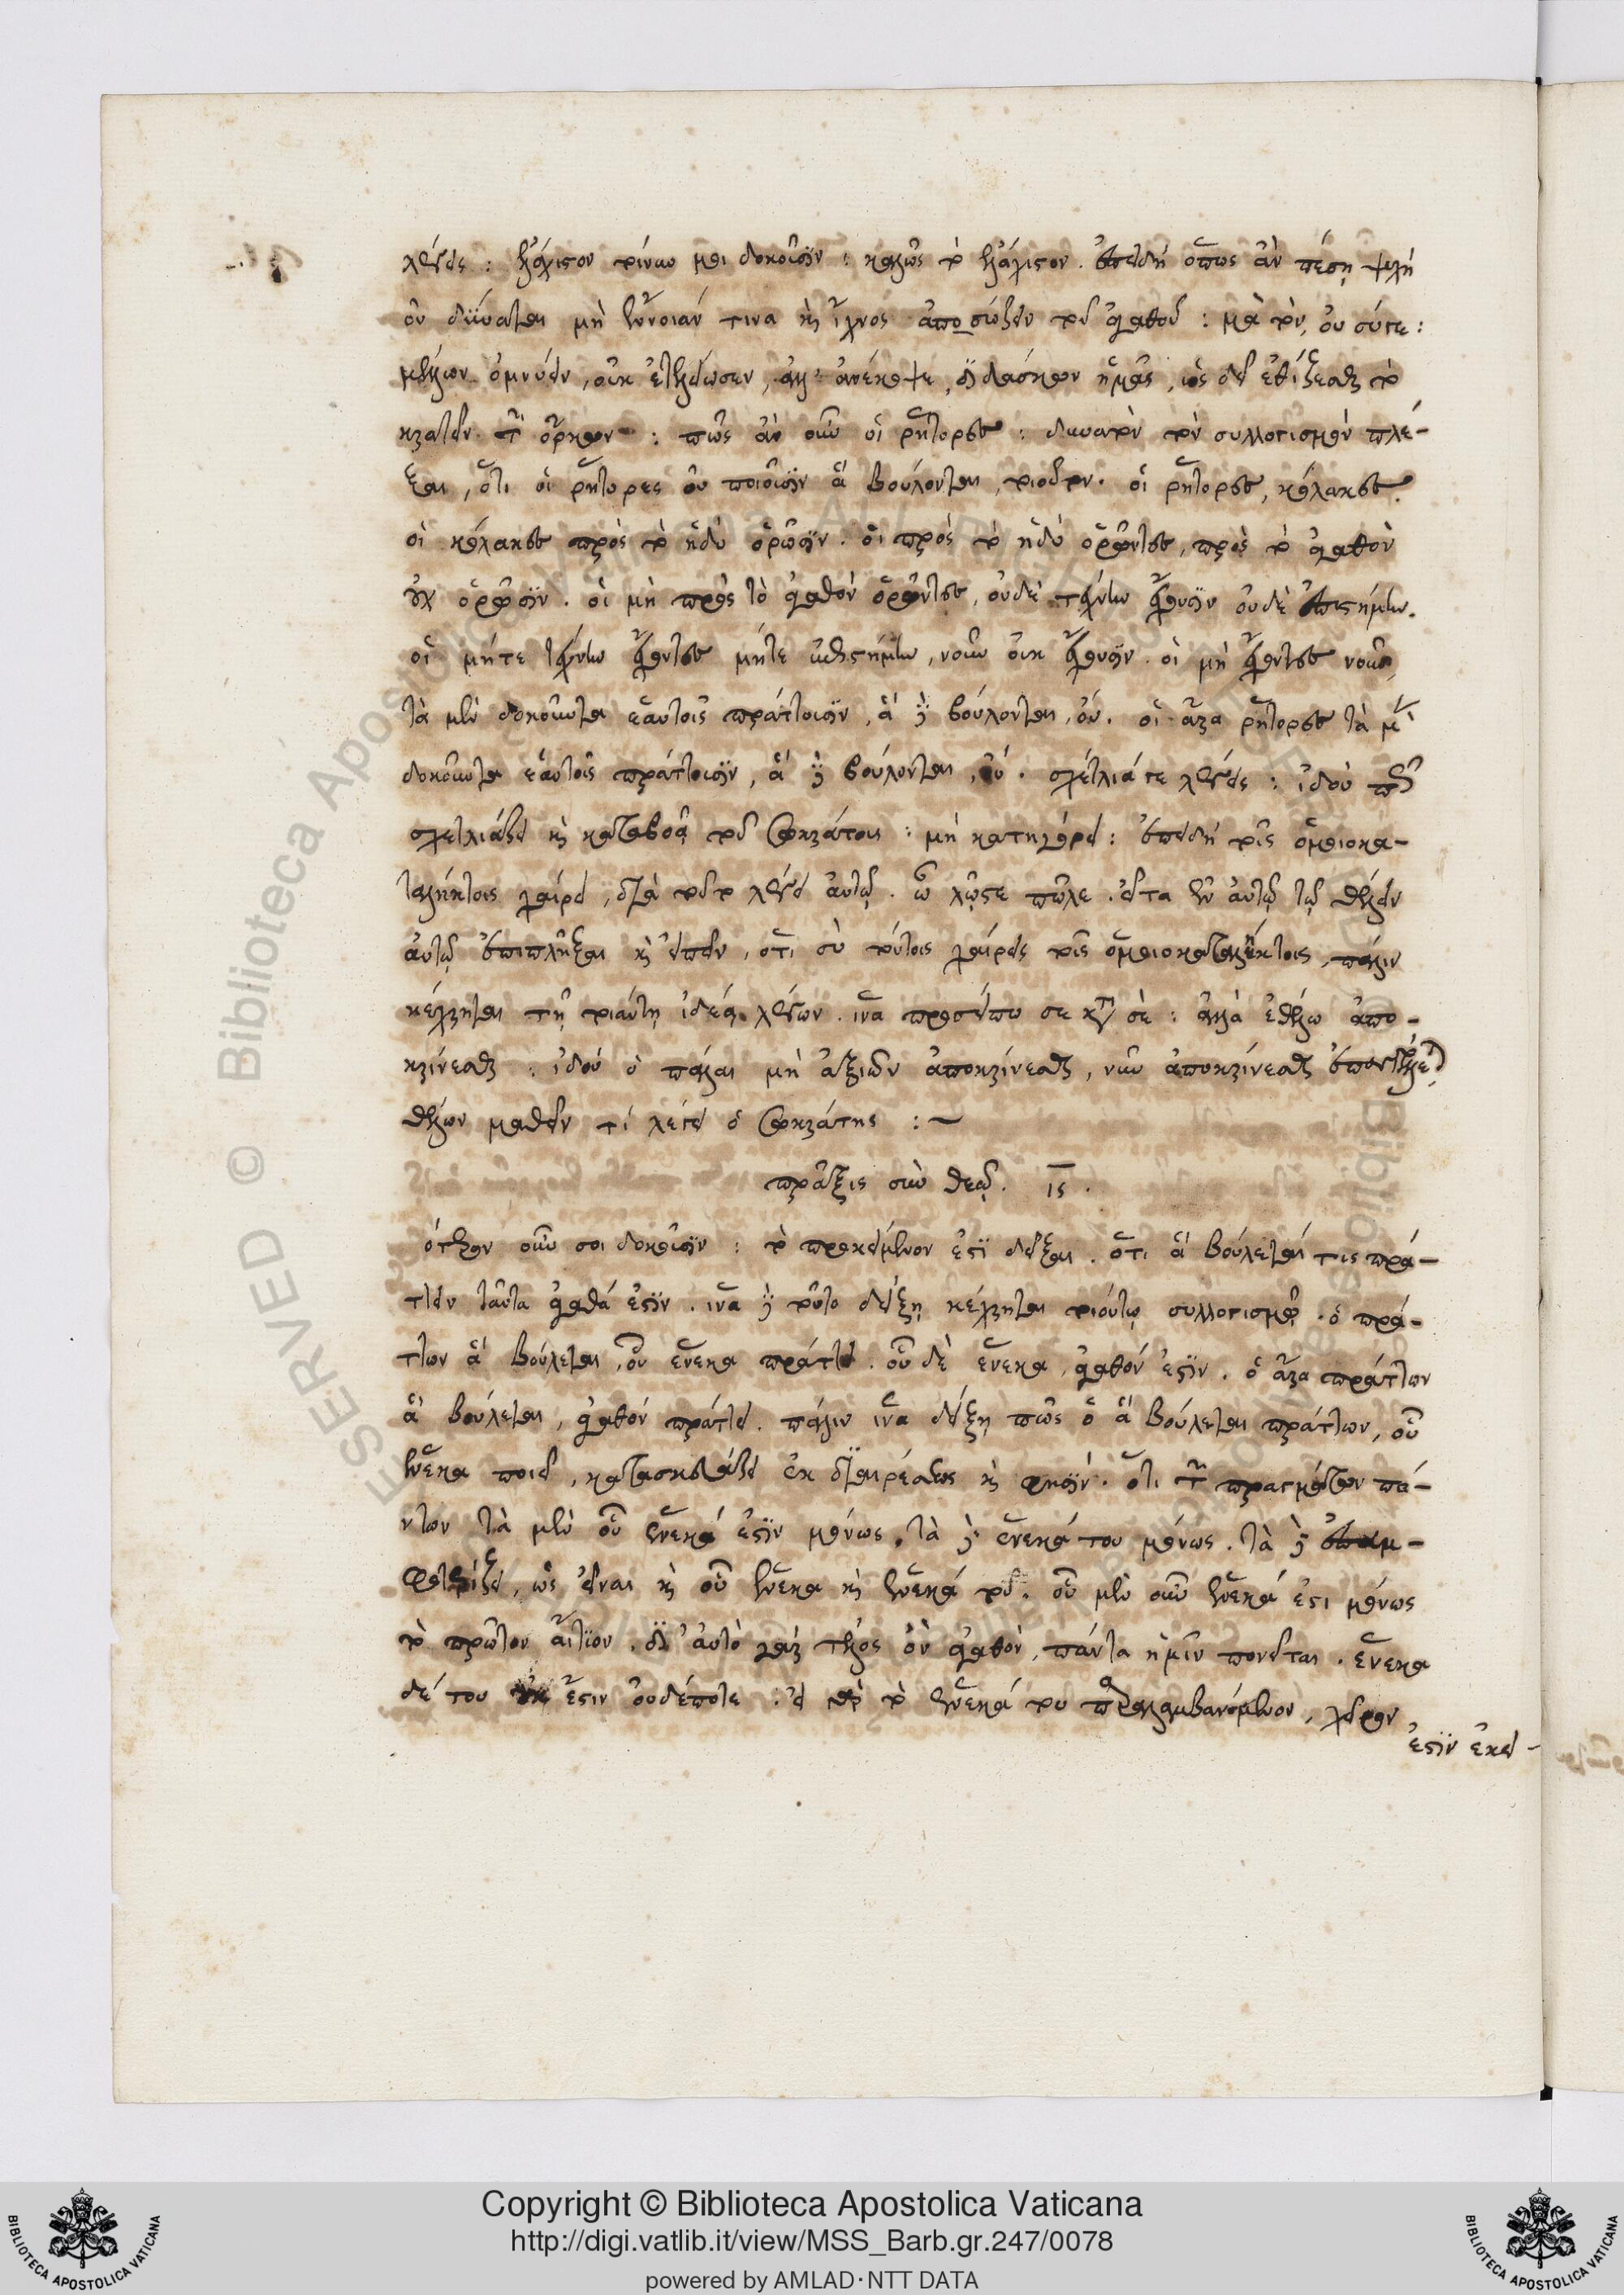 λέγεις : ἐλάχιστον τοίνυν μοι δοκοῦσιν : καλῶς τὸ ἐλάχιστον. ἐπειδὴ ὅπως ἂν πέσῃ ψυχὴ
οὐ δύναται μὴ ἔννοιάν τινα καὶ ἴχνος ἀποσώζειν τοῦ ἀγαθοῦ : μὰ τὸν, οὐ σύγε :
μέλλων ὀμνύειν, οὐκ ἐτελείωσεν, ἀλλ' ἀνέκοψε, διδάσκων ἡμᾶς, ὡς δεῖ ἐθίζεσθαι τὸ
κρατεῖν τῶν ὅρκων : πῶς ἂν οὖν οἱ ῥήτορες : δυνατὸν τὸν συλλογισμὸν πλέ-
ξαι, ὅτι οἱ ῥήτορες οὐ ποιοῦσιν ἃ βούλονται, τοιοῦτον. οἱ ῥήτορες, κόλακες.
οἱ κόλακες πρὸς τὸ ἡδὺ ὁρῶσιν. οἱ πρὸς τὸ ἡδὺ ὁρῶντες, πρὸς τὸ ἀγαθὸν
οὐχ ὁρῶσιν. οἱ μὴ πρὸς τὸ ἀγαθὸν ὁρῶντες, οὐδὲ τέχνην ἔχουσιν οὐδὲ ἐπιστήμην.
οἱ μήτε τέχνην ἔχοντες μήτε ἐπιστήμην, νοῦν οὐκ ἔχουσιν. οἱ μὴ ἔχοντες νοῦν,
τὰ μὲν δοκοῦντα ἑαυτοῖς πράττουσιν, ἃ δὲ βούλονται, οὔ. οἱ ἄρα ῥήτορες τὰ μὲν
δοκοῦντα ἑαυτοῖς πράττουσιν, ἃ δὲ βούλονται, οὔ. σχέτλιά γε λέγεις : ἰδοὺ πῶς
σχετλιάζει καὶ καταβοᾷ τοῦ Σωκράτους : μὴ κατηγόρει : ἐπειδὴ τοῖς ὁμοιοκα-
ταλήκτοις χαίρει, διὰ τοῦτο λέγει αὐτῷ. ὦ λῷστε πῶλε. εἶτα ἐν αὐτῷ τῷ θέλειν
αὐτῷ ἐπιπλῆξαι καὶ εἰπεῖν, ὅτι σὺ τούτοις χαίρεις τοῖς ὁμοιοκαταλήκτοις, πάλιν
κέχρηται τῇ τοιαύτῃ ἰδέᾳ λέγων. ἵνα προσείπω σε κατὰ σέ : ἀλλὰ ἐθέλω ἀπο-
κρίνεσθαι : ἰδοὺ ὁ πάλαι μὴ ἀξιῶν ἀποκρίνεσθαι, νῦν ἀποκρίνεσθαι
θέλων μαθεῖν τί λέγει ὁ Σωκράτης : ~
πρᾶξις σὺν θεῷ. ις.
ότερον οὖν σοι δοκοῦσιν : τὸ προκείμενον ἐστὶ δεῖξαι. ὅτι ἃ βούλεταί τις πρά-
ττειν ταῦτα ἀγαθά ἐστιν. ἵνα δὲ τοῦτο δείξῃ κέχρηται τοιούτῳ συλλογισμῷ. ὁ πρά-
ττων ἃ βούλεται, οὗ ἕνεκα πράττει. οὗ δὲ ἕνεκα, ἀγαθόν ἐστιν. ὁ ἄρα πράττων
ἃ βούλεται, ἀγαθὸν πράττει. πάλιν ἵνα δείξῃ πῶς ὁ ἃ βούλεται πράττων, οὗ
ἕνεκα ποιεῖ, κατασκευάζει ἐκ διαιρέσεως καὶ φησὶν. ὅτι τῶν πραγμάτων πά-
ντων τὰ μὲν οὗ ἕνεκά ἐστιν μόνως, τὰ δὲ ἕνεκά του μόνως. τὰ δὲ ἐπαμ-
φοτερίζει, ὡς εἶναι καὶ οὗ ἕνεκα καὶ ἕνεκά του. οὗ μὲν οὖν ἕνεκά ἐστι μόνως
τὸ πρῶτον αἴτιον. δι' αὐτὸ γὰρ τέλος ὂν ἀγαθὸν, πάντα ἡμῖν πονεῖται. ἕνεκα
δέ του οὐκ ἔστιν οὐδέποτε : εἰ γὰρ τὸ ἕνεκά του παραλαμβανόμενον, χεῖρον
ἐστὶν ἐκεί-
Copyright © Biblioteca Apostolica Vaticana
http://digi.vatlib.it/view/MSS_Barb.gr.247/0078
powered by AMLAD·NTT DATA